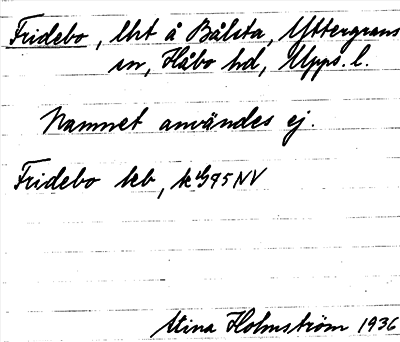 Fridebo, lht å Bålsta, Yttergrans
sn, Håbo hd, Upps. l.
Namnet användes ej.
Fridebo kb,
Stina Holmström 1936